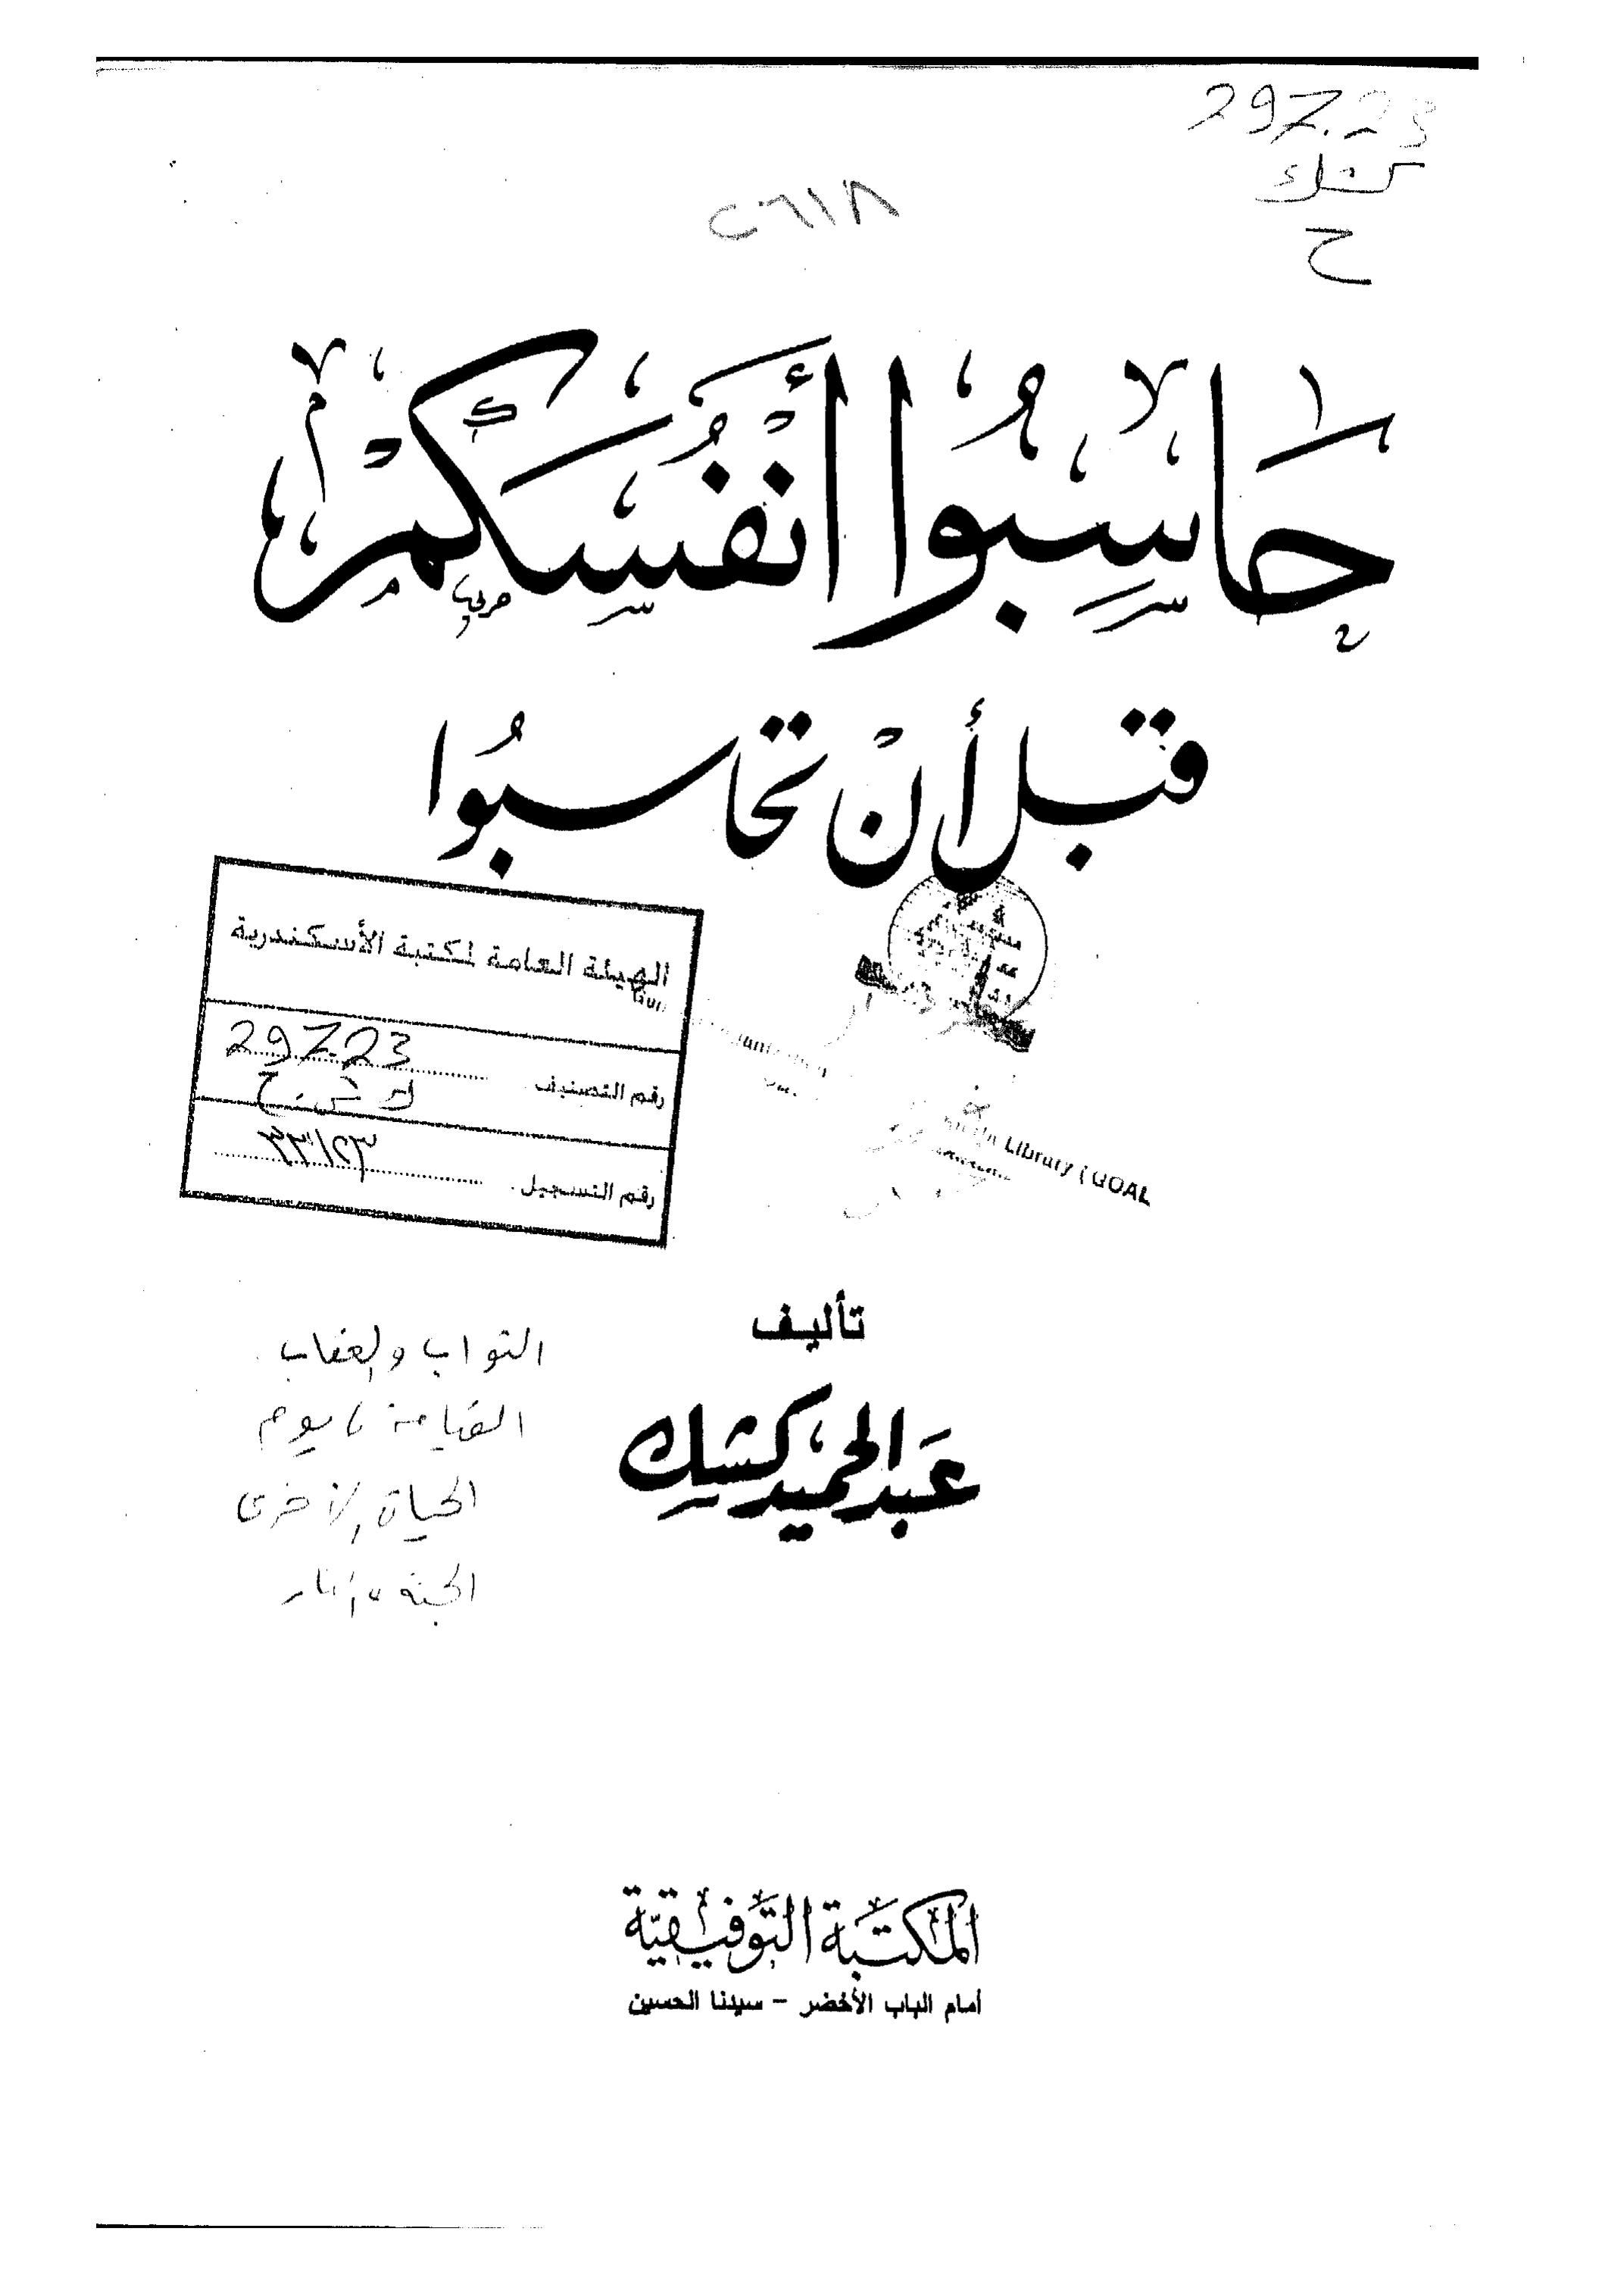 297.23
كشك
ح
٢٦١٨
حَاسِبُوا أَنْفُسَكُمْ
قبل أنْ تحاسبُوا
الهيئة العامة لمكتبة الأسكندرية
رقم التصنيف 297.23
ك ش . ح
رقم التسجيل
Library (GOAL
تأليف
عبد الحميد كشك
الثواب والعقاب
القيامة ، يوم
الحياة الأخرى
الجنة والنار
المكتبة التوفيقية
أمام الباب الأخضر - سيدنا الحسين